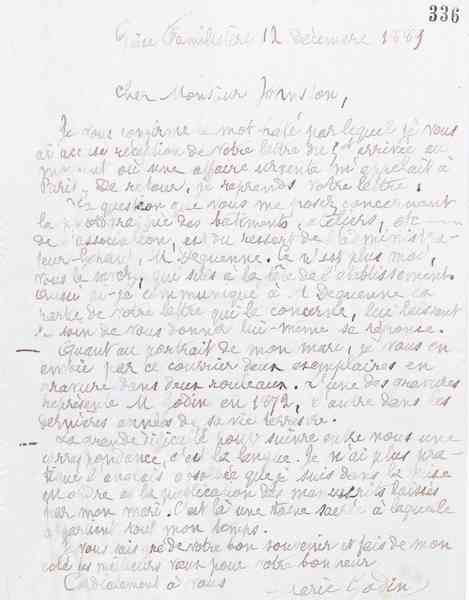 336
Guise Familistère 12 Décembre 1889
Cher Monsieur Johnston,
Je vous confirme le mot hâté par lequel je vous
ai accusé réception de votre lettre du arrivée au
moment où une affaire urgente m'appelait à
Paris. De retour, je reprends votre lettre.
La question que vous me posez concernant
la des bâtiments, ateliers, etc
de l'association, est du ressort de l'administra-
teur-Gérant, M Dequenne. Ce n'est plus moi,
vous le savez, qui suis à la tête de l'établissement.
Aussi ai-je communiqué à M Dequenne la
partie de votre lettre qui le concerne, lui laissant
le soin de vous donner lui-même sa réponse.
Quant au portrait de mon mari, je vous en
envoie par ce courrier deux exemplaires en
gravure dans deux rouleaux. L'une des gravures
représente M. Godin en 1872, l'autre dans les
dernières années de sa vie terrestre.
La grande difficulté pour suivre entre nous une
correspondance, c'est la langue. Je n'ai plus pra-
tiqué l'anglais absorbée que je suis dans la mise
en ordre et la publication des manuscrits laissés
par mon mari. C'est là une tâche sacrée à laquelle
appartient tout mon temps.
Je vous sais gré de votre bon souvenir et fais de mon
côté les meilleurs vœux pour votre bonheur
Cordialement à vous
Marie Godin